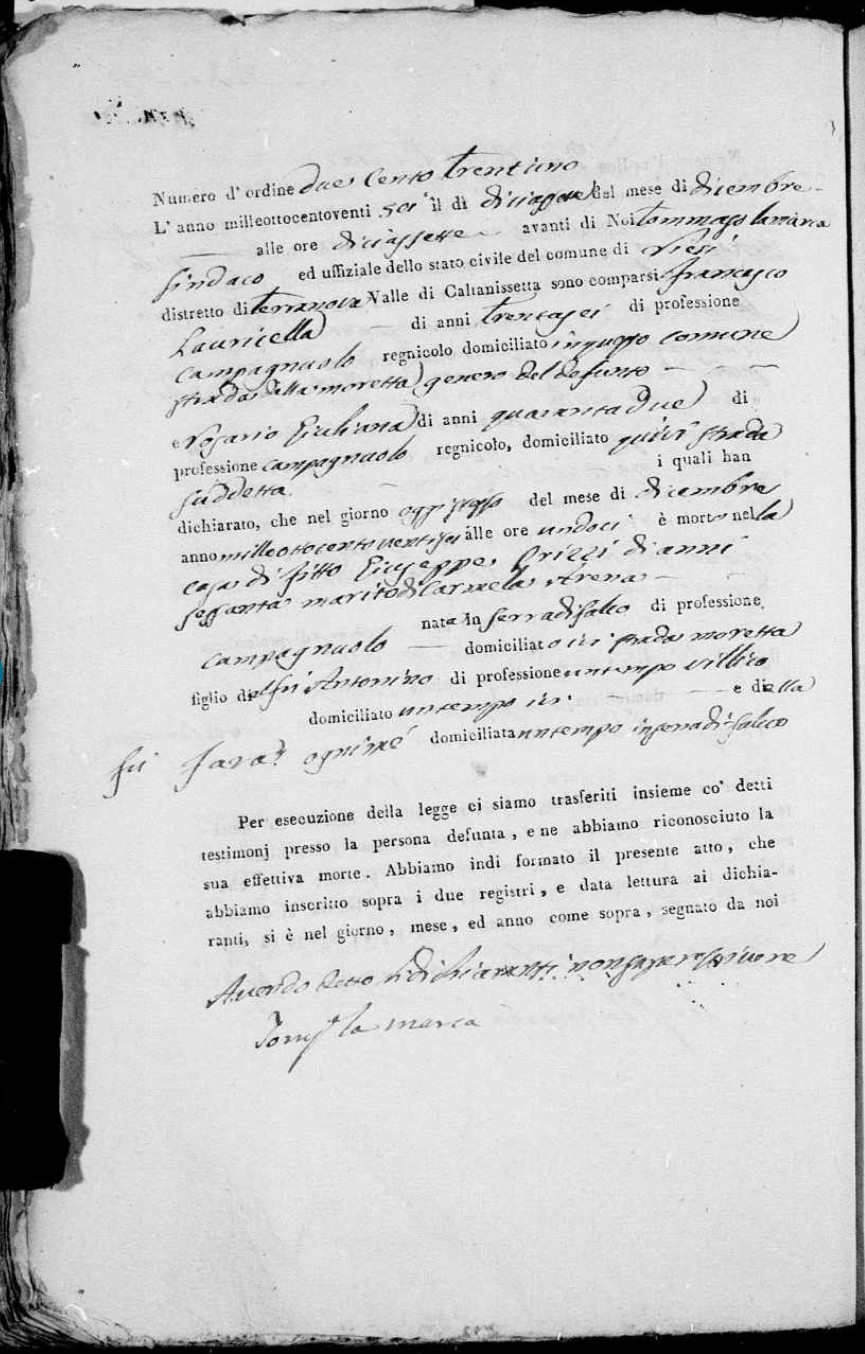 Numero d' ordine due Cento trentuno
L' anno milleottocentoventi sei il di diciassette del mese di dicembre
alle ore diciassette avanti di Noi tommaso lamarca
sindaco ed uffiziale dello stato civile del comune di Riesi
distretto di terranova Valle di Caltanissetta sono comparsi francesco
Lauricella di anni trentasei di professione
campagnuolo regnicolo domiciliato in questo comune
strada della moretta genero del defunto
e rosario Giuliana di anni quarantadue di
professione campagnuolo regnicolo, domiciliato quivi strada
suddetta i quali han
dichiarato, che nel giorno oggi stesso del mese di dicembre
anno milleottocentoventisei alle ore undeci è morto nella
casa di fitto Giuseppe Orizzi di anni
sessanta marito di Carmela Arena
nato in serradifalco di professione
campagnuolo domiciliato ivi strada moretta
figlio del fu Antonino di professione un tempo villico
domiciliato un tempo ivi e della
fu domiciliata un tempo in serradifalco
Per esecuzione della legge ci siamo trasferiti insieme co' detti
testimonj presso la persona defunta, e ne abbiamo riconosciuto la
sua effettiva morte. Abbiamo indi formato il presente atto, che
abbiamo inscritto sopra i due registri, e data lettura ai dichia-
ranti, si è nel giorno, mese, ed anno come sopra, segnato da noi
Avendo detto li dichiaranti non sapere scrivere
la marca